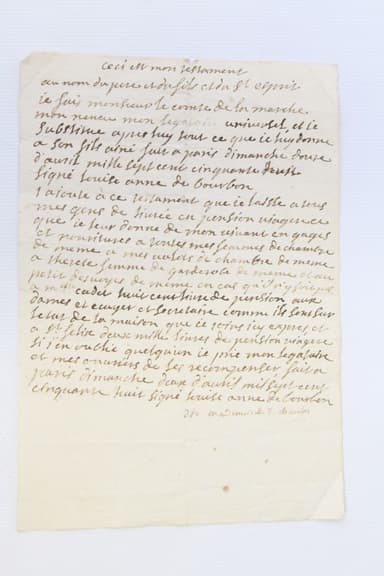 Ceci est mon testament
au nom du pere et du fils et du st esprit
ie fais monsieur le comte de la marche
mon neveu mon legataire universel, et ie
substitue apres luy tout ce que ie luy donne
a son fils ainé fait a paris dimanche douse
d'avril mille sept cent cinquante
signé louise anne de bourbon
j'ajoute a ce testament que ie laisse a tous
mes gens de livrée en pension viagere ce
que ie leur donne de mon vivant en gages
et nouritures a toutes mes femmes de chambre
de meme a mes valets de chambre de meme
a therese femme de garderobe de meme et au
petit de meme en cas qu'il
a cadet huit cent livre de pension aux
dames et ecuyer et secretaire comme ils sont sur
letat de la maison que ie joins icy expres et
a st felix deux mille livres de pension viagere
si j'en oublie quelqu'un ie prie mon legataire
et mes de les recompenser fait a
paris dimanche deux d'avril mil sept cent
cinquante huit signé louise anne de bourbon